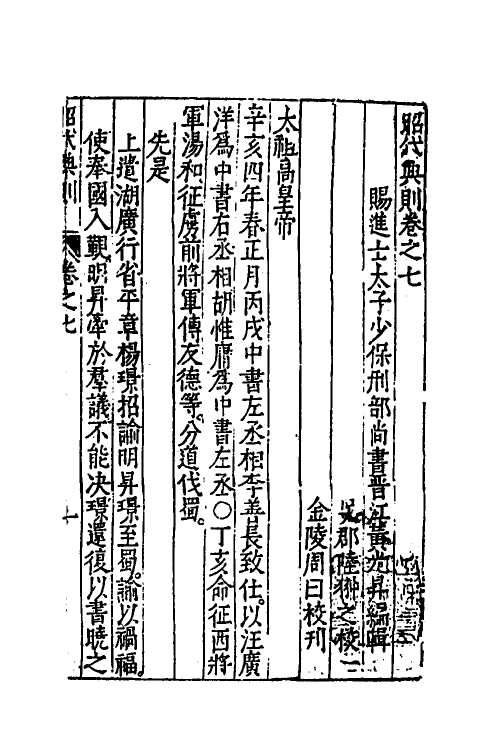 昭代典則卷之七
賜進士太子少保刑部尚書晉江黃光昇編輯
吳郡陸翀之校
金陵周曰校刊
太祖高皇帝
辛亥四年春正月丙戌中書左丞相李善長致仕以汪廣
洋爲中書右丞相胡惟庸爲中書左丞〇丁亥命征西將
軍湯和征虜前將軍傅友德等分道伐蜀
先是
上遣湖廣行省平章楊璟招諭明昇璟至蜀諭以禍福
使奉國入覲明昇牽於羣議不能决璟還復以書曉之
昭代典則 卷之七